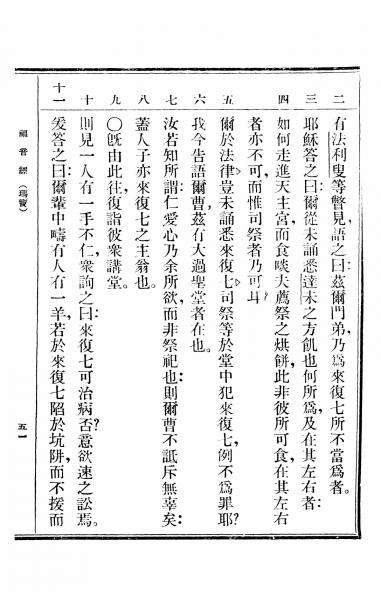 二　有法利叟等瞥見，語之曰：茲爾門弟，乃爲來復七所不當爲者。
三　耶穌答之曰：爾從未誦悉達未之方飢也何所爲，及在其左右者：
四　如何走進天主宮，而食啖夫薦祭之烘餅，此非彼所可食，在其左右
者亦不可，而惟司祭者乃可耳？
五　爾於法律，豈未誦悉來復七，司祭等於堂中犯來復七，例不爲罪耶？
六　我今告語爾曹，茲有大過聖堂者在也。
七　汝若知所謂仁愛心乃余所欲而非祭祀也：則爾曹不詆斥無辜矣：
八　蓋人子亦來復七之主翁也。
九　〇旣由此往，復詣彼衆講堂。
十　則見一人有一手不仁，衆詢之曰：來復七可治病否？意欲速之訟焉。
十一　爰答之曰：爾輩中疇有人有一羊，若於來復七陷於坑阱，而不援而
福音經（瑪竇）
五一